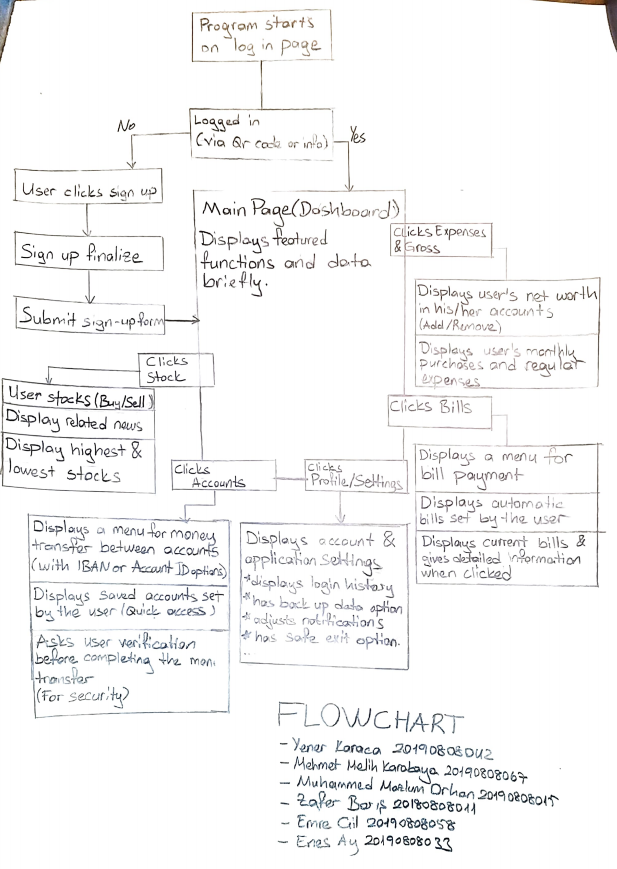 Program starts
on log in page
Logged in
(via Qr code or info)
No
Yes
User clicks sign up
Sign up finalize
Submit sign-up form
Main Page (Dashboard)
Displays featured
functions and data
briefly.
Clicks Expenses
& Gross
Displays user's net worth
in his/her accounts
(Add/Remove)
Displays user's monthly
purchoses and regular
expenses
Clicks
Stock
User stocks (Buy/Sell)
Display related news
Display highest &
lowest stocks
Clicks Bills
Displays a menu for
bill payment
Displays automatic
bills set by the user
Displays current bills &
gives detailed information
when clicked
Clicks
Accounts
Clicks
Profile/Settings
Displays a menu for money
transfer between accounts
(with IBAN or Account ID options)
Displays saved accounts set
by the user (Quick access)
Asks user verification
before completing the mon
transfer
(For security)
Displays account &
application settings
*displays login history
*has back up data option
*adjusts notifications
*has safe exit option.
..
FLOWCHART
- Yener Karaca 20190808042
- Mehmet Melih Karabaya 20190808067
- Muhammed Mazlum Orhan 20190808015
- Zafer Barış 20180808011
- Emre Gil 20190808058
- Enes Ay 20190808033